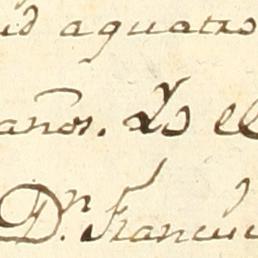 aquatro
años. Yo el
Dn. Francisc